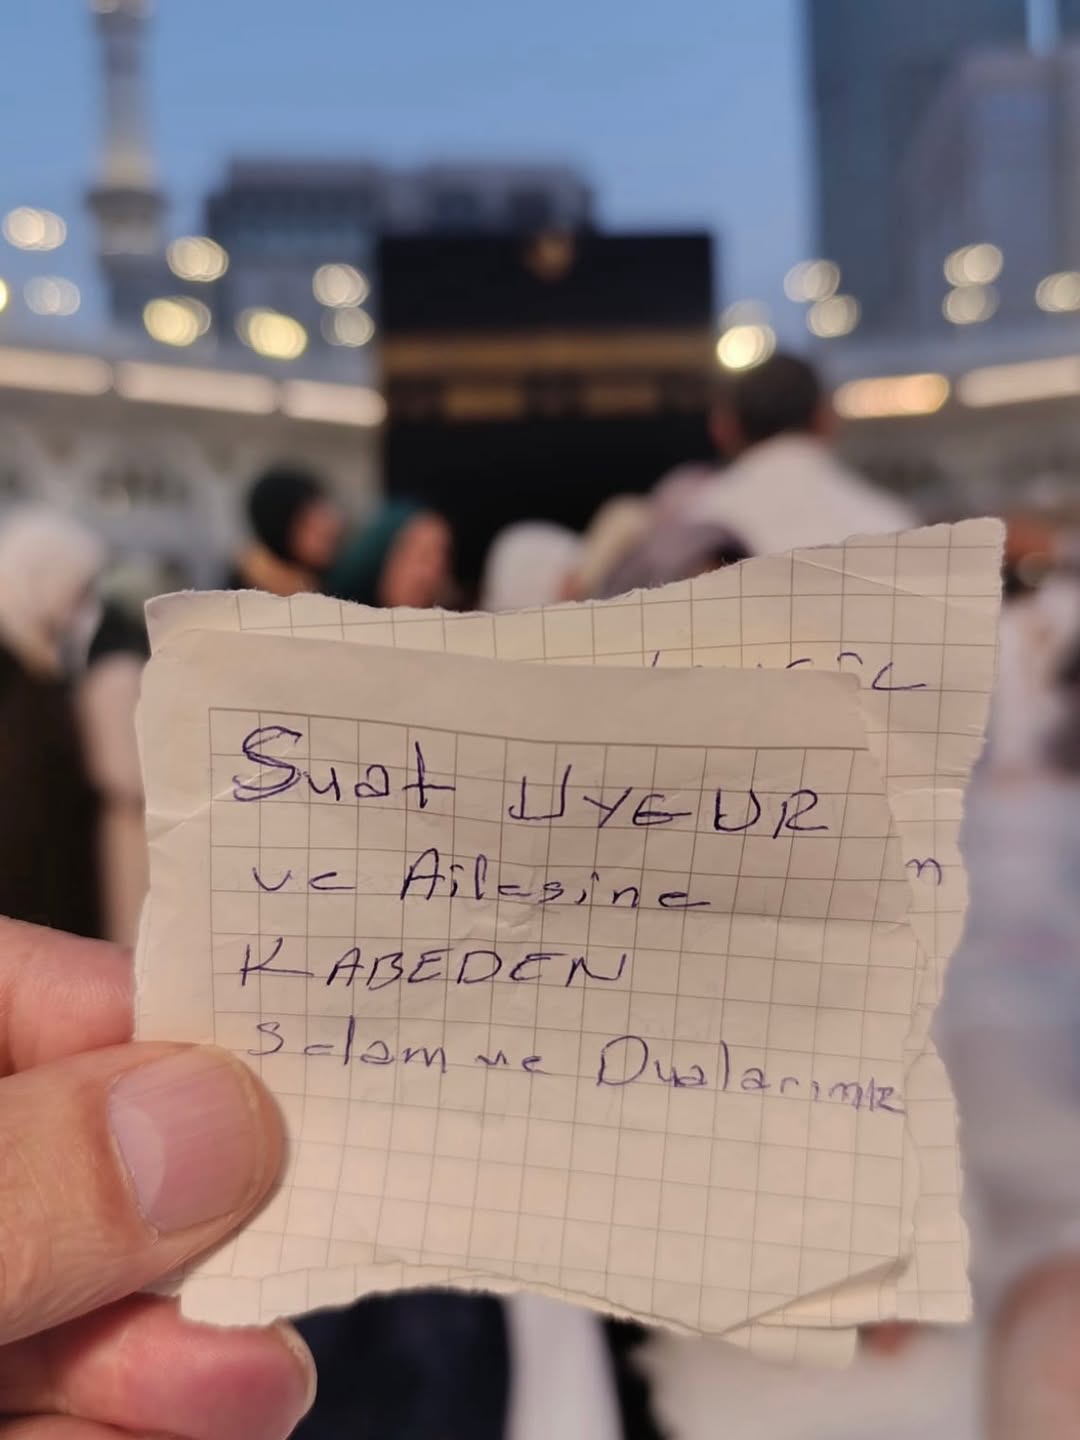 Suat UYGUR
ve Ailesine
KABEDEN
Selam ve Dualarımız